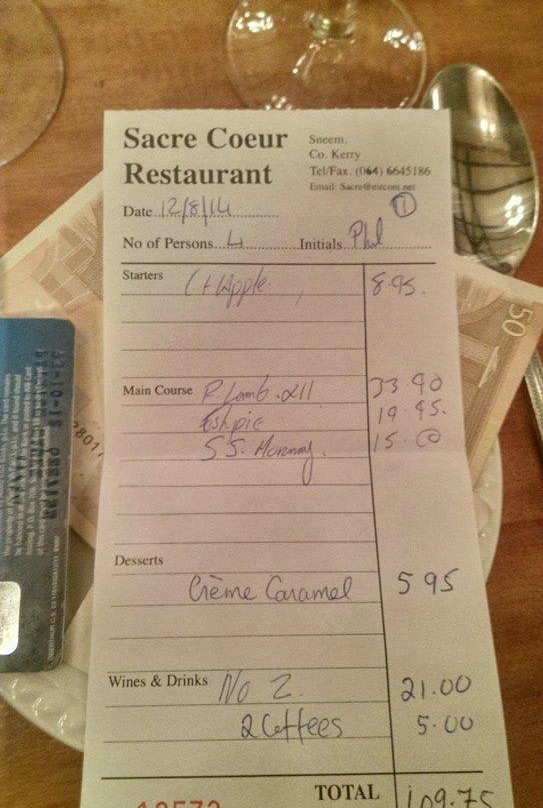 Sacre Coeur
Restaurant
Sneem,
Co. Kerry
Tel/Fax. (064) 6645186
Email: Sacre@eircom.net
1
Date 12/8/14
No of Persons 4 Initials Phil
Starters C+Apple 8.95.
Main Course R Lamb 33.90
Fish pie 19 95.
S S. Mornay. 15.00
Desserts
Crème Caramel 5 95
Wines & Drinks No 2. 21.00
2 Coffees 5.00
TOTAL 109.75
50